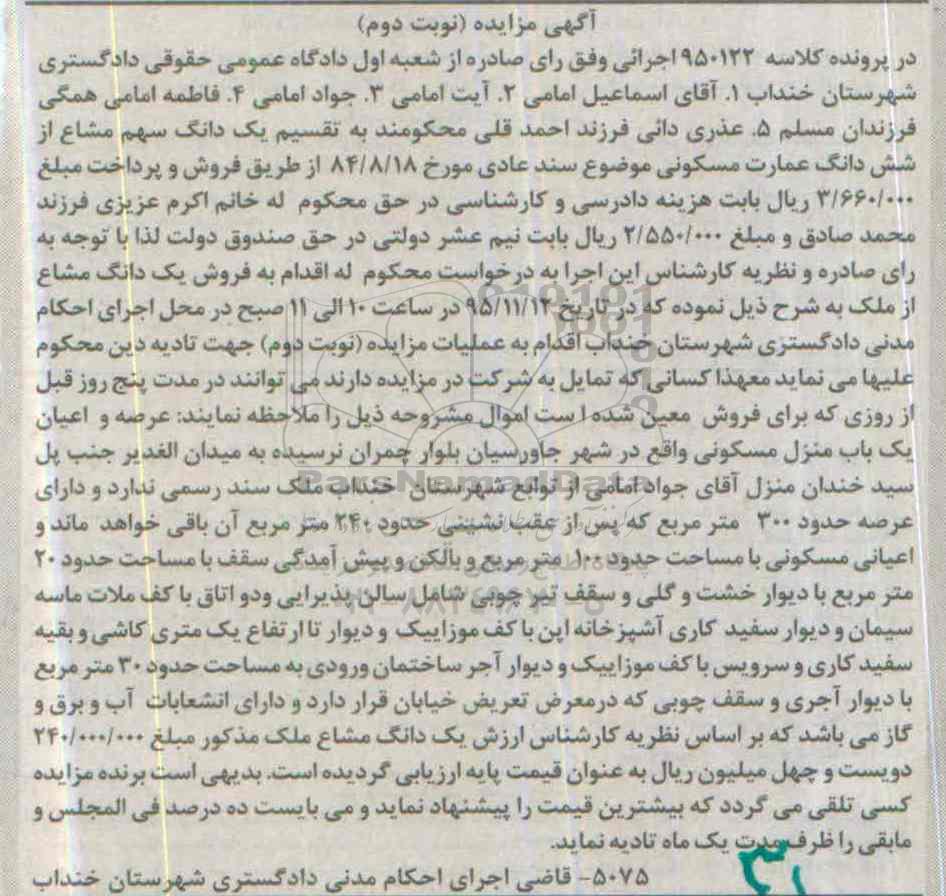 آگهی مزایده (نوبت دوم)
در پرونده کلاسه ۹۵۰۱۲۲ اجرائی وفق رای صادره از شعبه اول دادگاه عمومی حقوقی دادگستری
شهرستان خنداب ۱. آقای اسماعیل امامی ۲. آیت امامی ۳. جواد امامی ۴. فاطمه امامی همگی
فرزندان مسلم ۵. عذری دائی فرزند احمد قلی محکومند به تقسیم یک دانگ سهم مشاع از
شش دانگ عمارت مسکونی موضوع سند عادی مورخ ۸۴/۸/۱۸ از طریق فروش و پرداخت مبلغ
۳/۶۶۰/۰۰۰ ریال بابت هزینه دادرسی و کارشناسی در حق محکوم له خانم اکرم عزیزی فرزند
محمد صادق و مبلغ ۲/۵۵۰/۰۰۰ ریال بابت نیم عشر دولتی در حق صندوق دولت لذا با توجه به
رای صادره و نظریه کارشناس این اجرا به درخواست محکوم له اقدام به فروش یک دانگ مشاع
از ملک به شرح ذیل نموده که در تاریخ ۹۵/۱۱/۱۲ در ساعت ۱۰ الی ۱۱ صبح در محل اجرای احکام
مدنی دادگستری شهرستان خنداب اقدام به عملیات مزایده (نوبت دوم) جهت تادیه دین محکوم
علیها می نماید معهذا کسانی که تمایل به شرکت در مزایده دارند می توانند در مدت پنج روز قبل
از روزی که برای فروش معین شده ا ست اموال مشروحه ذیل را ملاحظه نمایند: عرصه و اعیان
یک باب منزل مسکونی واقع در شهر جاورسیان بلوار چمران نرسیده به میدان الغدیر جنب پل
سید خندان منزل آقای جواد امامی از توابع شهرستان خنداب ملک سند رسمی ندارد و دارای
عرصه حدود ۳۰۰ متر مربع که پس از عقب نشینی حدود ۲۴۰ متر مربع آن باقی خواهد ماند و
اعیانی مسکونی با مساحت حدود ۱۰۰ متر مربع و بالکن و پیش آمدگی سقف با مساحت حدود ۲۰
متر مربع با دیوار خشت و گلی و سقف تیر چوبی شامل سالن پذیرایی ودو اتاق با کف ملات ماسه
سیمان و دیوار سفید کاری آشپزخانه اپن با کف موزاییک و دیوار تا ارتفاع یک متری کاشی و بقیه
سفید کاری و سرویس با کف موزاییک و دیوار آجر ساختمان ورودی به مساحت حدود ۳۰ متر مربع
با دیوار آجری و سقف چوبی که درمعرض تعریض خیابان قرار دارد و دارای انشعابات آب و برق و
گاز می باشد که بر اساس نظریه کارشناس ارزش یک دانگ مشاع ملک مذکور مبلغ ۲۴۰/۰۰۰/۰۰۰
دویست و چهل میلیون ریال به عنوان قیمت پایه ارزیابی گردیده است. بدیهی است برنده مزایده
کسی تلقی می گردد که بیشترین قیمت را پیشنهاد نماید و می بایست ده درصد فی المجلس و
مابقی را ظرف مدت یک ماه تادیه نماید.
۵۰۷۵- قاضی اجرای احکام مدنی دادگستری شهرستان خنداب